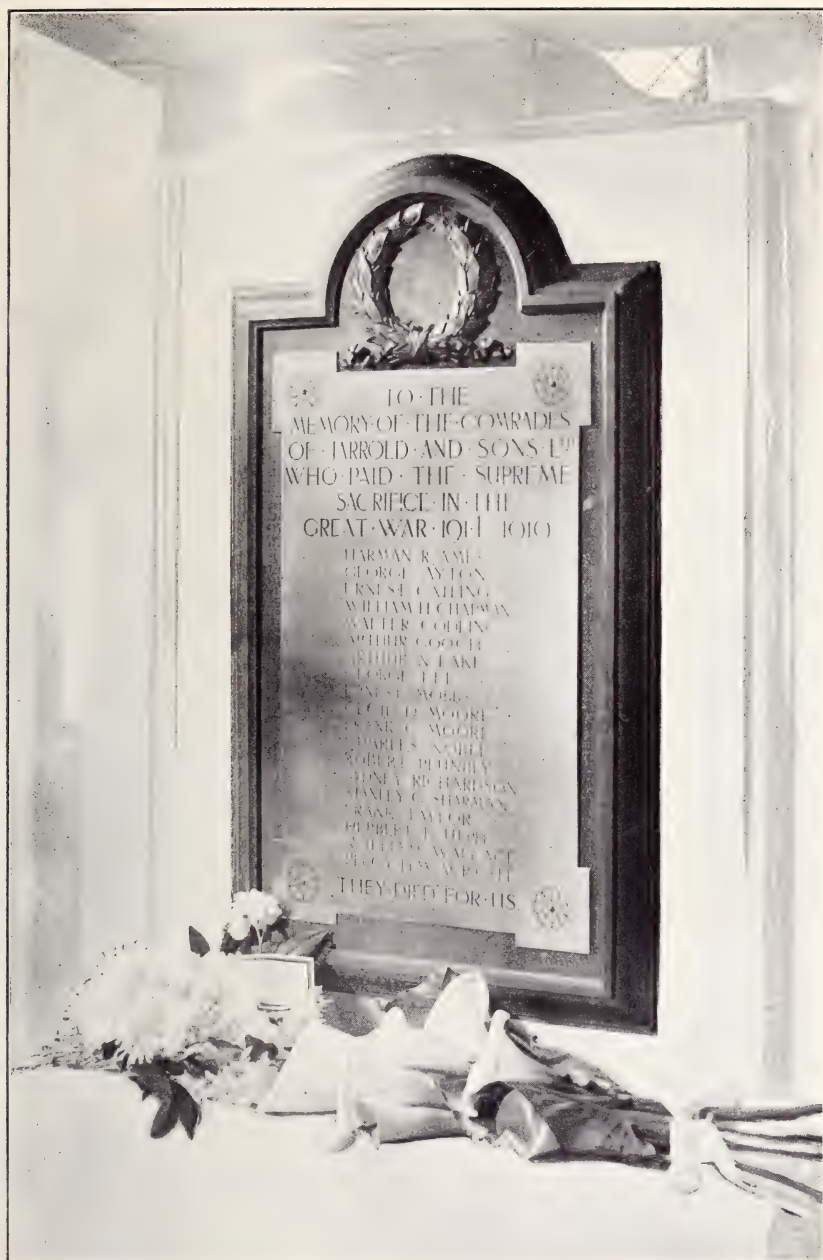 TO·THE
MEMORY·OF·THE·COMRADES
OF·JARROLD·AND·SONS·LTD
WHO·PAID·THE·SUPREME
SACRIFICE·IN·THE
GREAT·WAR·1914 1919
HARMAN R. AMES
GEORGE AYTON
ERNEST CATLING
WILLIAM H. CHAPMAN
WALTER CODLING
ARTHUR GOOCH
ARTHUR N. LAKE
GEORGE LEE
ERNEST MOBBS
CECIL D. MOORE
FRANK G. MOORE
CHARLES NOBLE
ROBERT
SYDNEY RICHARDSON
STANLEY C. SHARMAN
FRANK TAYLOR
HERBERT
WALLACE
WRIGHT
THEY·DIED·FOR·US